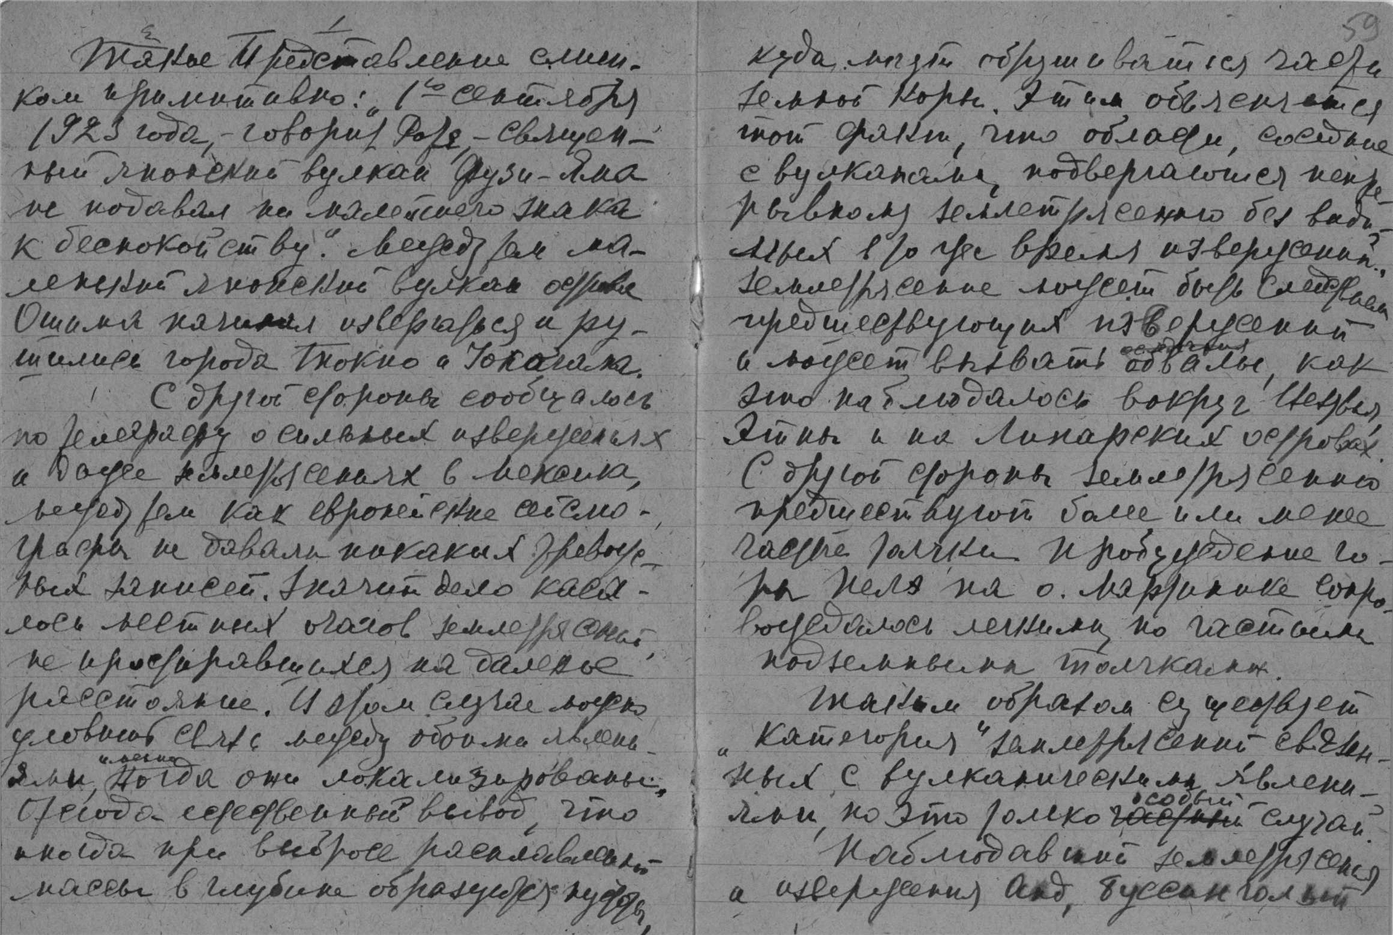 59
Такое Представление слиш-
ком примитивно: „1го сентября
1923 года, - говорит Роте, - священ-
ный японский вулкан Фузи-Яма
не подавал ни малейшего знака
к беспокойству“. Между тем ма-
ленький японский вулкан острова
Ошима начинал извергаться и ру-
шились города Токио и Иокогама.
С другой стороны сообщалось
по телеграфу о сильных извержениях
и даже землетрясениях в Мексике,
между тем как европейские сейсмо-
графы не давали никаких тревож-
ных записей. Значит дело каса-
лось местных очагов землетрясений,
не простиравшихся на далекое
расстояние. В этом случае можно
уловить связь между обоими явлени-
ями, когда они локализированы.
Отсюда естественный вывод, что
иногда при выбросе расплавленной
массы в глубине образуются пустоты,
куда могут обрушиваться части
земной коры. Этим объясняется
тот факт, что области, соседние
с вулканами, подвергаются непре-
рывному землетрясению без види-
мых в то же время извержений.
Землетрясение может быть следствием
предшествующих извержений
и может вызвать обвалы, как
это наблюдалось вокруг Везувия,
Этны и на Липарских островах.
С другой стороны землетрясению
предшествуют более или менее
частые толчки. Пробуждение го-
ры Пелэ на о. Мартинике сопро-
вождалось легкими, но частыми
подземными толчками.
Таким образом существует
„категория“ землетрясений связан-
ных с вулканическими явлени-
ями, но это только особый случай.
Наблюдавший землетрясения
и извержения Анд, Буссенгольт